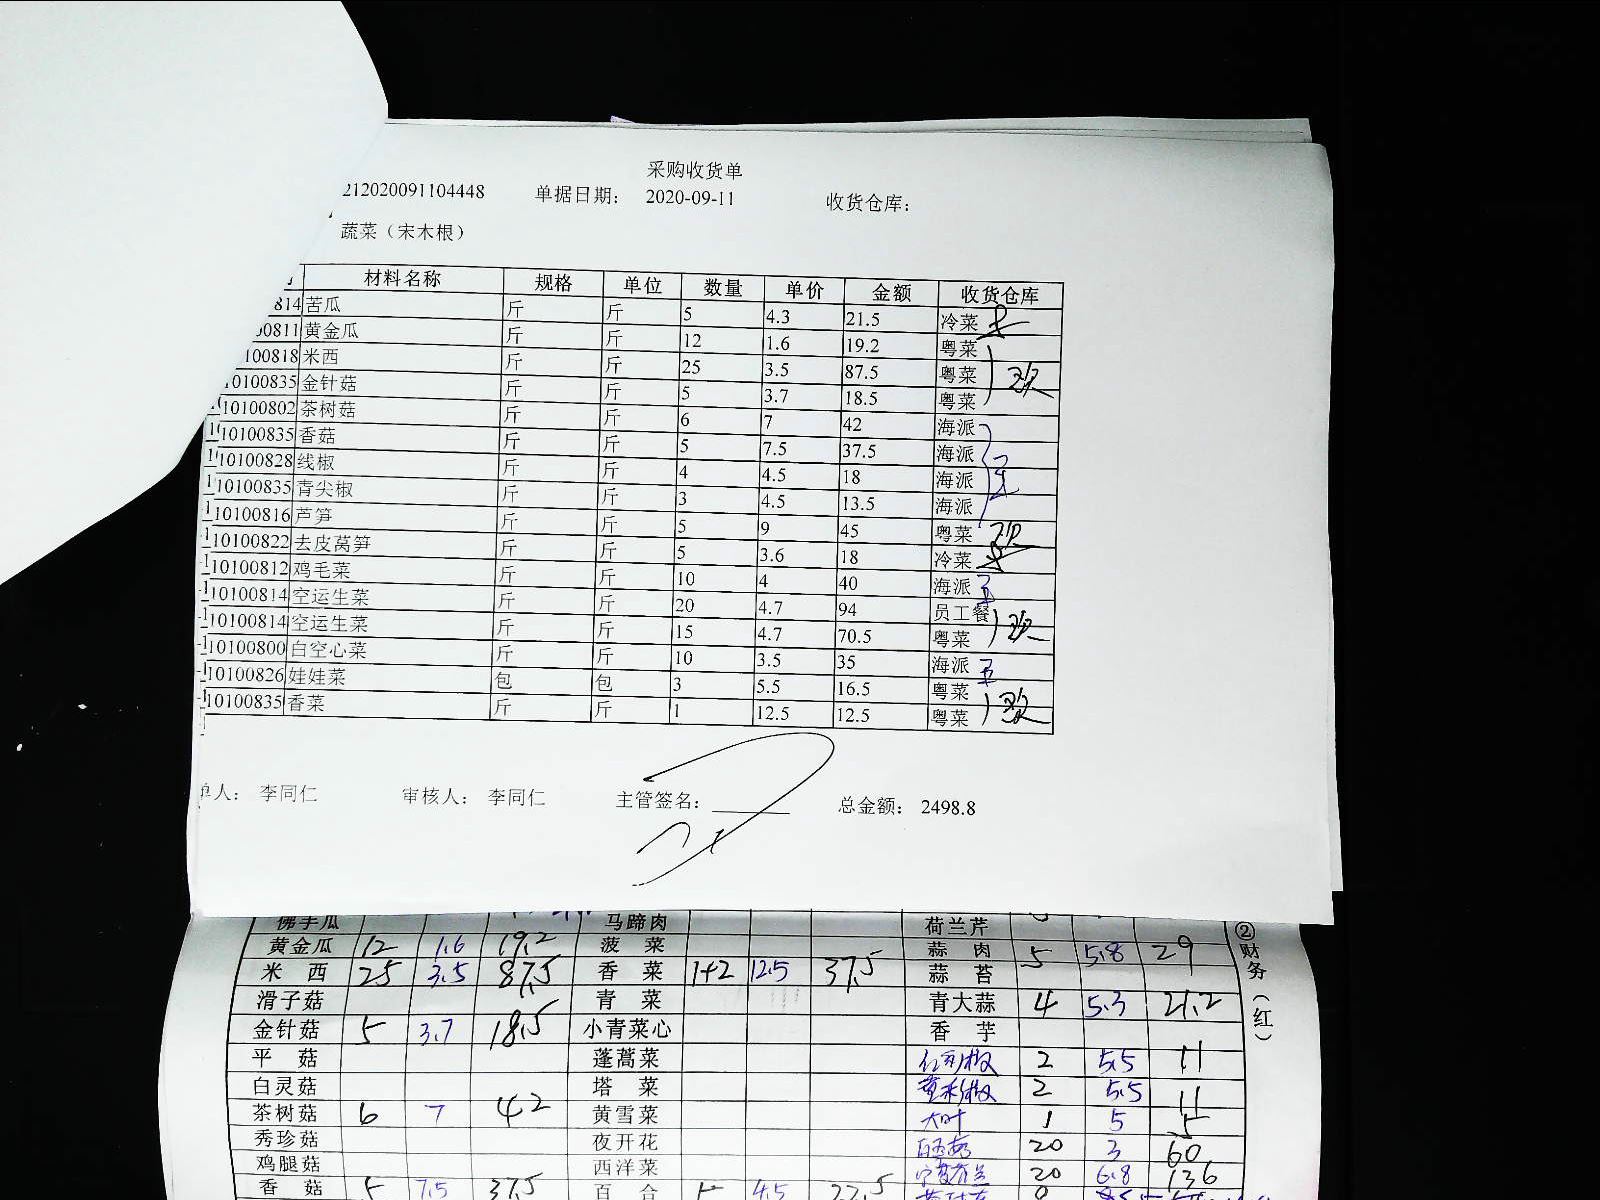 采购收货单
212020091104448 单据日期： 2020-09-11 收货仓库：
蔬菜（宋木根）
材料名称 规格 单位 数量 单价 金额 收货仓库
814 苦瓜 斤 斤 5 4.3 21.5 冷菜
00811 黄金瓜 斤 斤 12 1.6 19.2 粤菜
100818 米西 斤 斤 25 3.5 87.5 粤菜
10100835 金针菇 斤 斤 5 3.7 18.5 粤菜
10100802 茶树菇 斤 斤 6 7 42 海派
10100835 香菇 斤 斤 5 7.5 37.5 海派
10100828 线椒 斤 斤 4 4.5 18 海派
10100835 青尖椒 斤 斤 3 4.5 13.5 海派
10100816 芦笋 斤 斤 5 9 45 粤菜
10100822 去皮莴笋 斤 斤 5 3.6 18 冷菜
10100812 鸡毛菜 斤 斤 10 4 40 海派
10100814 空运生菜 斤 斤 20 4.7 94 员工餐
10100814 空运生菜 斤 斤 15 4.7 70.5 粤菜
10100800 白空心菜 斤 斤 10 3.5 35 海派
10100826 娃娃菜 包 包 3 5.5 16.5 粤菜
10100835 香菜 斤 斤 1 12.5 12.5 粤菜
单人： 李同仁 审核人： 李同仁 主管签名： 总金额： 2498.8
佛手瓜 马蹄肉 荷兰芹
黄金瓜 12 1.6 19.2 菠菜 蒜肉 5 5.8 29
米西 25 3.5 87.5 香菜 1+2 12.5 37.5 蒜苔
滑子菇 青菜 青大蒜 4 5.3 21.2
金针菇 5 3.7 18.5 小青菜心 香芋
平菇 蓬蒿菜 2 5.5 11
白灵菇 塔菜 2 5.5 11
茶树菇 6 7 42 黄雪菜 大叶 1 5 5
秀珍菇 夜开花 20 3 60
鸡腿菇 西洋菜 20 6.8 136
香菇 5 7.5 37.5 百合 5 4.5 22.5
②财务（红）